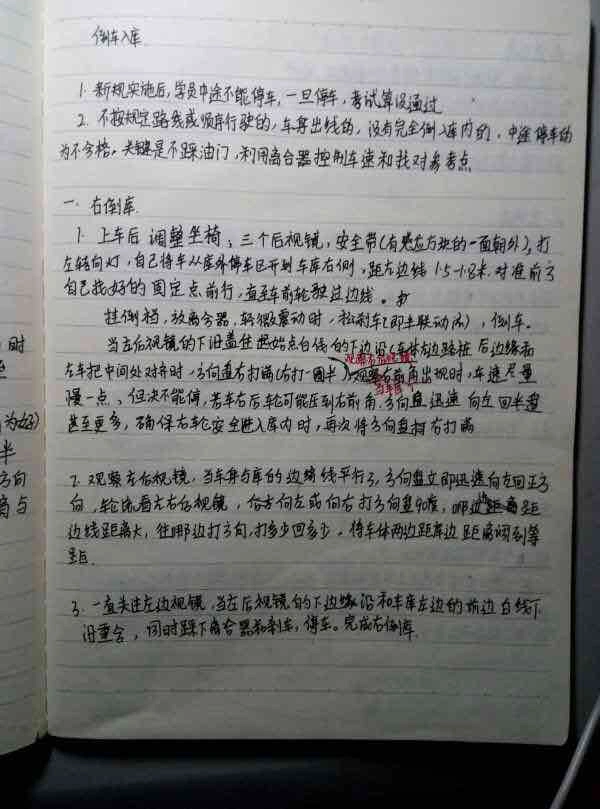 倒车入库
1. 新规实施后，学员中途不能停车，一旦停车，考试算没通过
2. 不按规定路线或顺序行驶的，车身出线的，没有完全倒入库内的，中途停车的
为不合格。关键是不踩油门，利用离合器控制车速和找对参考点
一. 右倒库.
1. 上车后 调整坐椅，三个后视镜，安全带(有感应方块的一面朝外)，打
左转向灯，自己将车从库外停车区开到车库右侧，距左边线1.5-1.8米，对准前方
自己找好的固定点前行，直至车前轮驶过边线。
挂倒档，放离合器，轻微震动时，松刹车(即半联动后)，倒车。
当左后视镜的下沿盖住起始点白线的下边沿(车体左路桩后边缘和
左车把中间处对齐时，方向盘右打满(右打一圈半)
当车身 右前角出现时，车速尽量
慢一点，但决不能停，若车右后轮可能压到右前角，方向盘迅速向左回半盘
甚至更多，确保右车轮安全进入库内时，再次将方向盘 右打满
2. 观察左后视镜，当车身与库的边缘线平行了，方向盘立即迅速向左回正方
向，轮流看左右后视镜，给方向左或向右打方向盘90度，哪边 距离距
边线距离大，往哪边打方向，打多少回多少。将车体两边距库边距离调到等
距.
3. 一直关注左边视镜，当左后视镜的下边缘沿和车库左边的前边白线下
沿重合，同时踩下离合器和刹车，停车。完成右倒库.
时
为好)
半
方向
离与